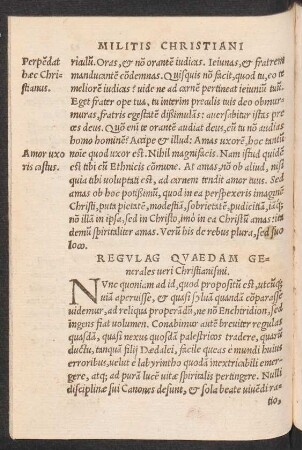 MILITIS CHRISTIANI
Perpēdat
hæc Chri-
stianus.
viadū. Oras, & nō orantē iudicas. Ieiunas, & fratrem
manducantē cōdemnas. Quisquis nō facit, quod tu, eo te
meliorē iudicas? uide ne ad carnē pertineat ieiuniū tuū.
Eget frater ope tua, tu interim præalis tuis deo obmur-
muras, fratris egestatē dissimulās: auersabitur istas pre
ces deus. Quō eni te orantē audiat deus, cū tu nō audias
homo hominē? Accipe & illud: Amas uxorē, hoc tantū
Amor uxo
ris castus.
noīe quod uxor est. Nihil magnifacis. Nam istud quidē
est tibi cū Ethnicis cōmune. At amas, nō ob aliud, nisi
quia tibi voluptati est, ad carnem tendit amor tuus. Sed
amas ob hoc potissimū, quod in ea perspexeris imaginē
Christi, puta pietatē, modestiā, sobrietatē, pudicitiā, iāqʒ
nō illā in ipsa, sed in Christo, imò in ea Christū amas: ita
demū spiritaliter amas. Verū his de rebus plura, sed suo
loco.
REGVLAE QVAEDAM GE-
nerales ueri Christianismi.
NVnc quoniam ad id, quod propositū est, utcūqʒ
uiā aperuisse, & quasi syluā quandā cōparasse
uidemur, ad reliqua properādū, ne nō Enchiridion, sed
ingens fiat volumen. Conabimur autē breuiter regulas
quasdā, quasi nexus quosdā palestricos tradere, quarū
ductu, tanquā filij Dædalei, facile queas è mundi huius
erroribus, uelut è labyrintho quodā inextricabili emer-
gere, atqʒ ad purā lucē uitæ spiritalis pertingere. Nulli
disciplinæ sui Canones desunt, & sola beate uiuēdi ra-
tio,